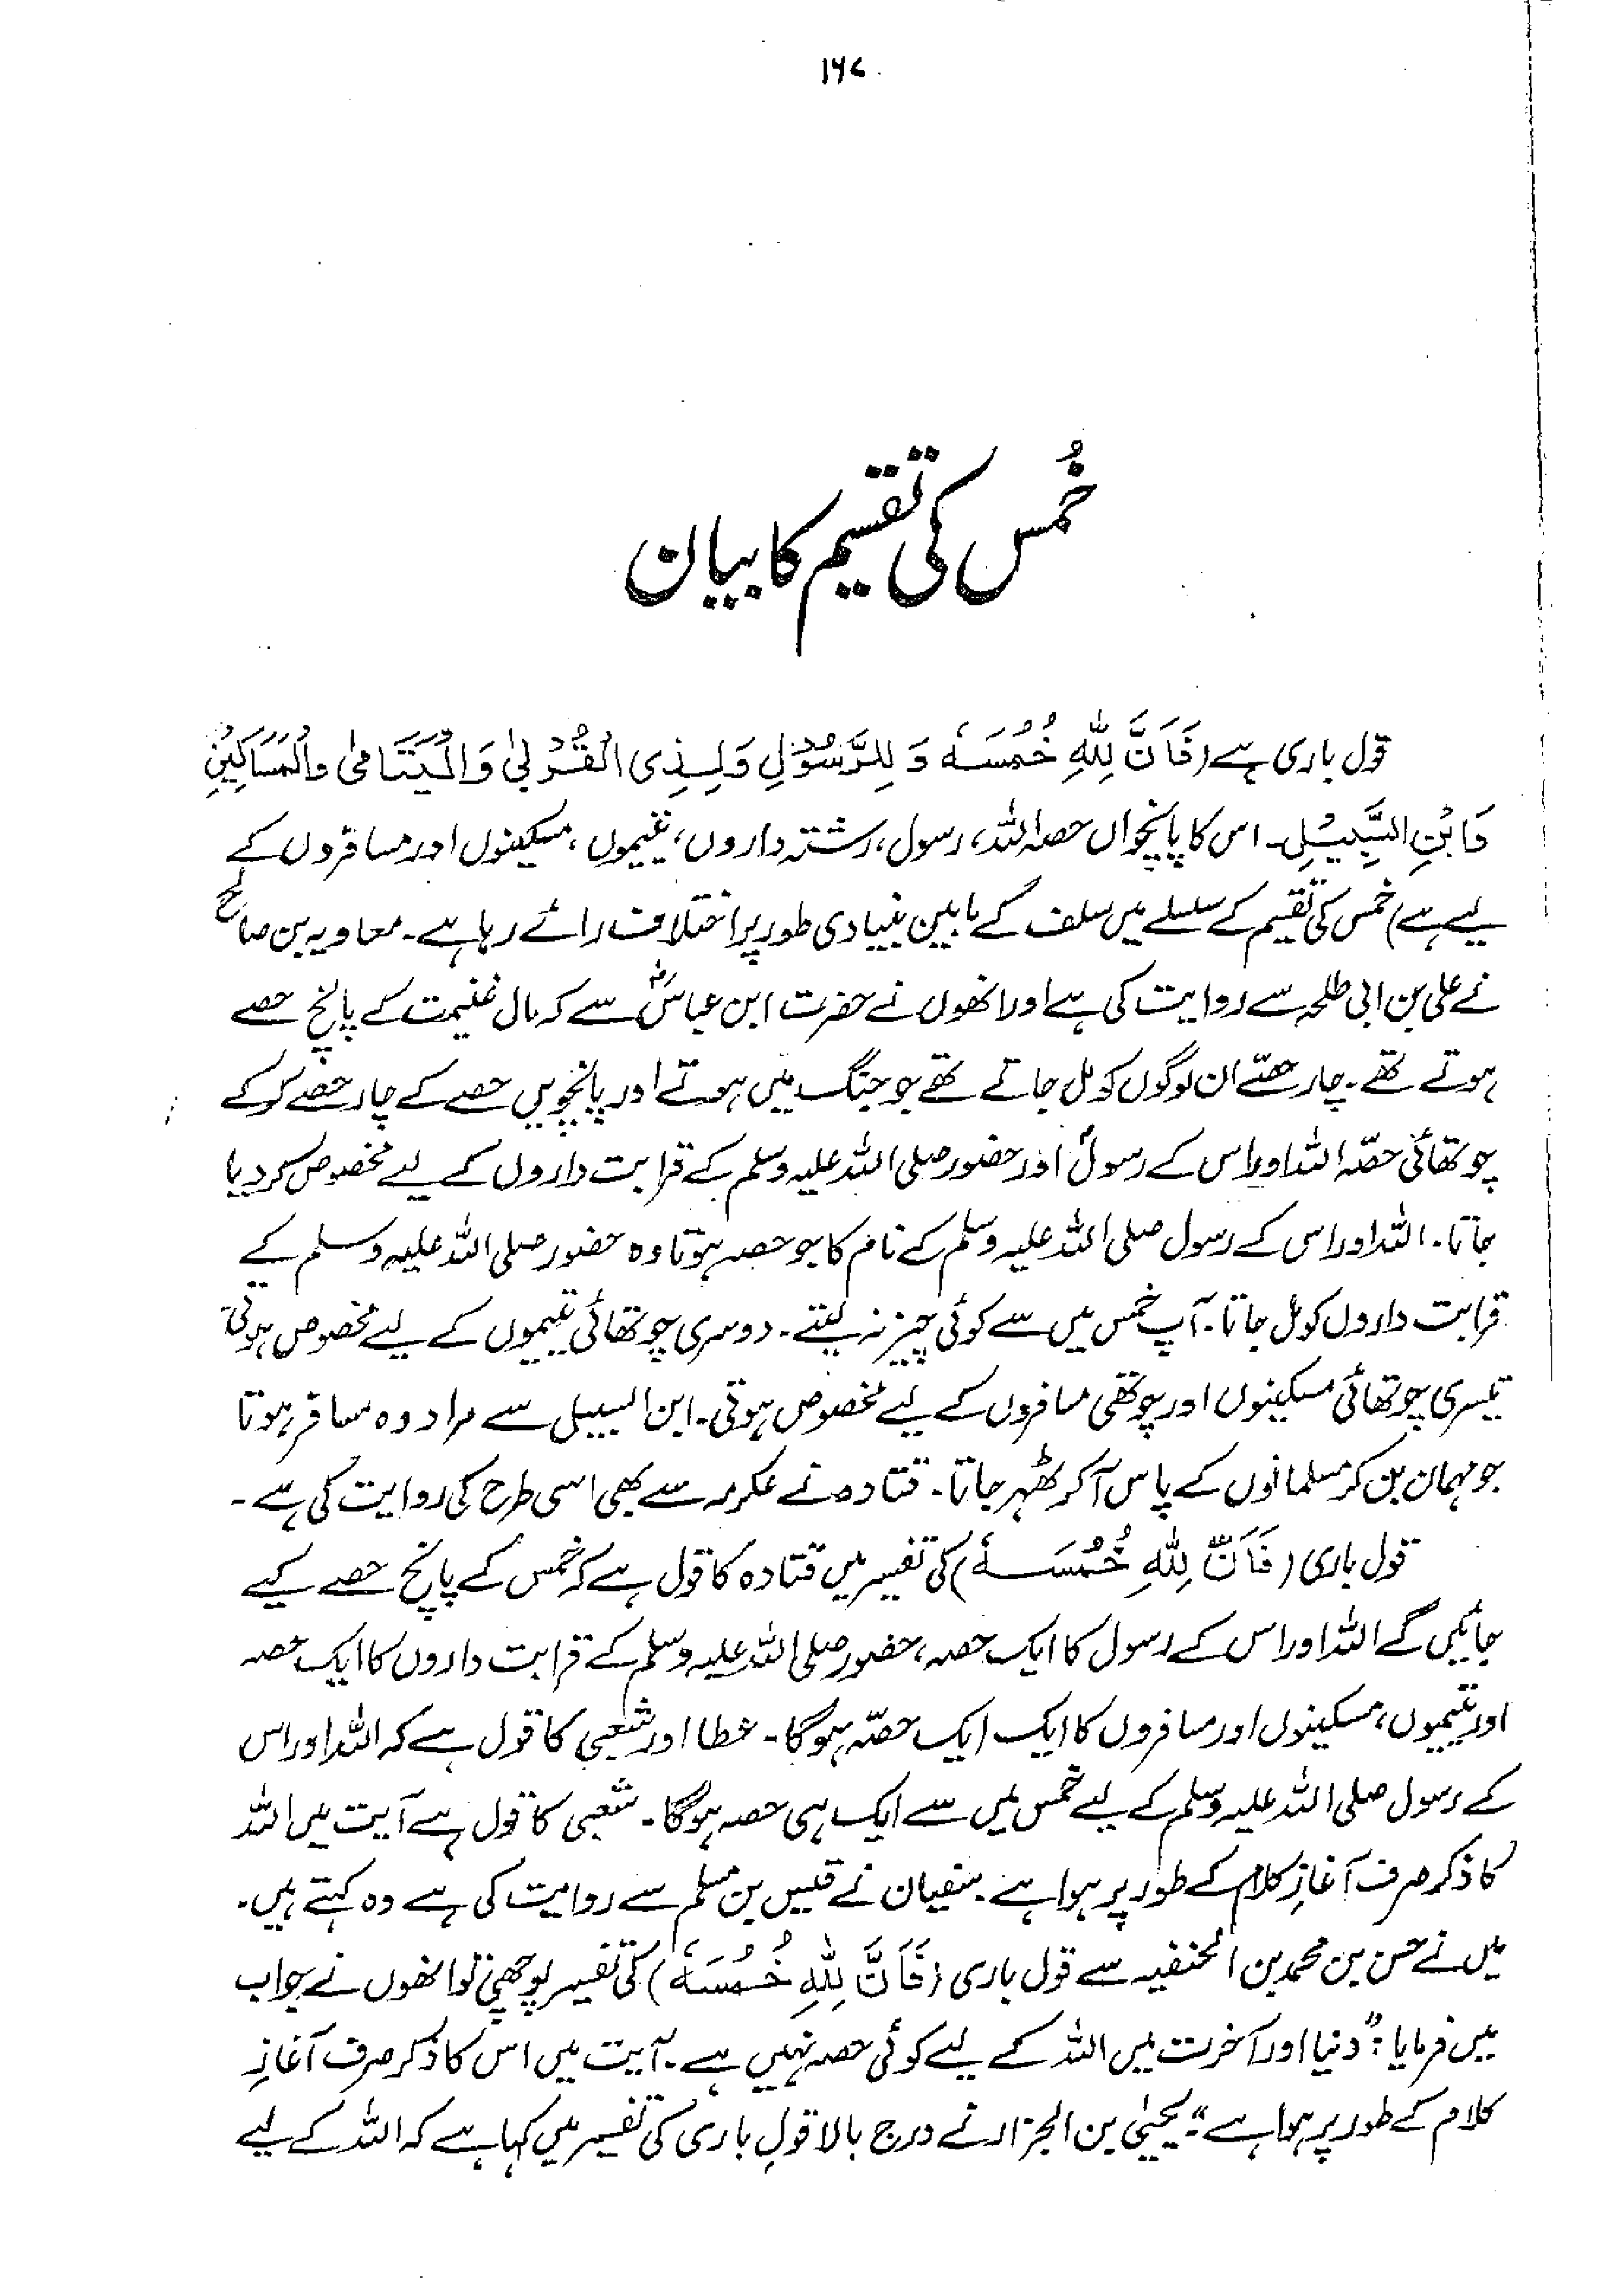 ۱۶۷
خُمس کی تقسیم کا بیان
قول باری ہے (فَاَنَّ لِلّٰهِ خُمُسَهٗ وَ لِلرَّسُوْلِ وَلِذِی الْقُرْبٰی وَالْیَتَامٰی وَالْمَسَاكِیْنِ
وَابْنِ السَّبِیْلِ۔ اس کا پانچواں حصہ اللہ، رسول، رشتہ داروں، یتیموں، مسکینوں اور مسافروں کے
لیے ہے) خمس کی تقسیم کے سلسلے میں سلف کے مابین بنیادی طور پر اختلاف رائے رہا ہے۔ معاویہ بن صالح
نے علی بن ابی طلحہ سے روایت کی ہے اور انھوں نے حضرت ابن عباسؓ سے کہ مال غنیمت کے پانچ حصے
ہوتے تھے۔ چار حصّے ان لوگوں کو مل جاتے تھے جو جنگ میں ہوتے اور پانچویں حصے کے چار حصّے کر کے
چوتھائی حصّہ اللہ اور اس کے رسولؐ اور حضور صلی اللہ علیہ وسلم کے قرابت داروں کے لیے مخصوص کر دیا
جاتا۔ اللہ اور اس کے رسول صلی اللہ علیہ وسلم کے نام کا جو حصہ ہوتا وہ حضور صلی اللہ علیہ وسلم کے
قرابت داروں کو مل جاتا۔ آپ خمس میں سے کوئی چیز نہ لیتے۔ دوسری چوتھائی یتیموں کے لیے مخصوص ہوتی۔
تیسری چوتھائی مسکینوں اور چوتھی مسافروں کے لیے مخصوص ہوتی۔ ابن السبیل سے مراد وہ مسافر ہوتا
جو مہمان بن کر مسلمانوں کے پاس آ کر ٹھہر جاتا۔ قتادہ نے عکرمہ سے بھی اسی طرح کی روایت کی ہے۔
قول باری (فَاَنَّ لِلّٰهِ خُمُسَهٗ) کی تفسیر میں قتادہ کا قول ہے کہ خمس کے پانچ حصے کیے
جائیں گے اللہ اور اس کے رسول کا ایک حصہ، حضور صلی اللہ علیہ وسلم کے قرابت داروں کا ایک حصہ
اور یتیموں، مسکینوں اور مسافروں کا ایک ایک حصّہ ہوگا۔ عطا اور شعبی کا قول ہے کہ اللہ اور اس
کے رسول صلی اللہ علیہ وسلم کے لیے خمس میں سے ایک ہی حصہ ہوگا۔ شعبی کا قول ہے آیت میں اللہ
کا ذکر صرف آغازِ کلام کے طور پر ہوا ہے۔ سفیان نے قیس بن مسلم سے روایت کی ہے وہ کہتے ہیں۔
میں نے حسن بن محمد بن الحنفیہ سے قول باری (فَاَنَّ لِلّٰهِ خُمُسَهٗ) کی تفسیر پوچھی تو انھوں نے جواب
میں فرمایا: "دنیا اور آخرت میں اللہ کے لیے کوئی حصہ نہیں ہے۔ آیت میں اس کا ذکر صرف آغازِ
کلام کے طور پر ہوا ہے" یحییٰ بن الجزار نے درج بالا قولِ باری کی تفسیر میں کہا ہے کہ اللہ کے لیے